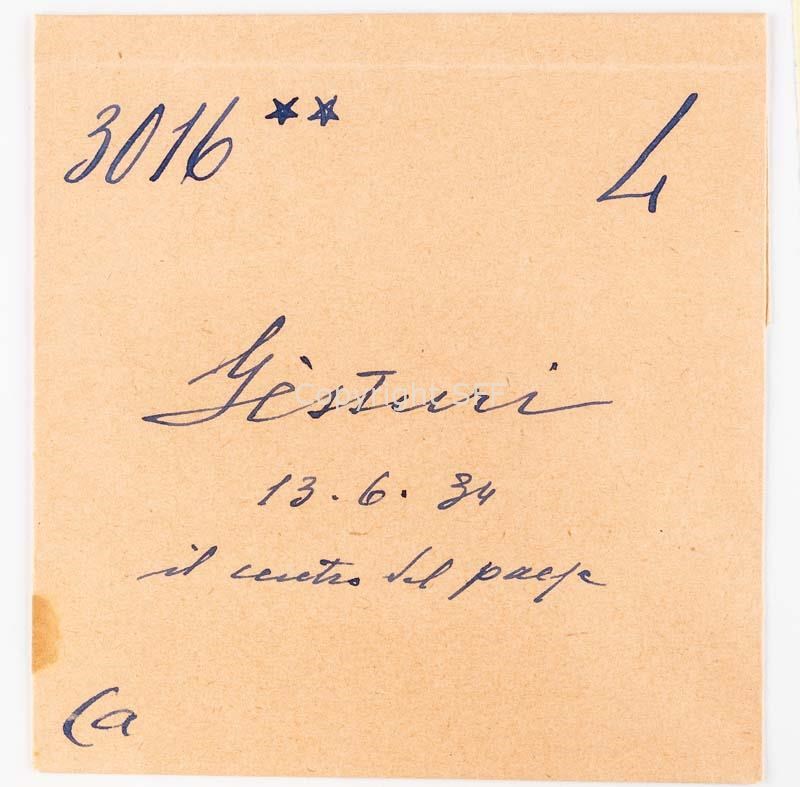 3016 ** L
Gèsturi
Copyright SFF
13.6.34
il centro del paese
Ca